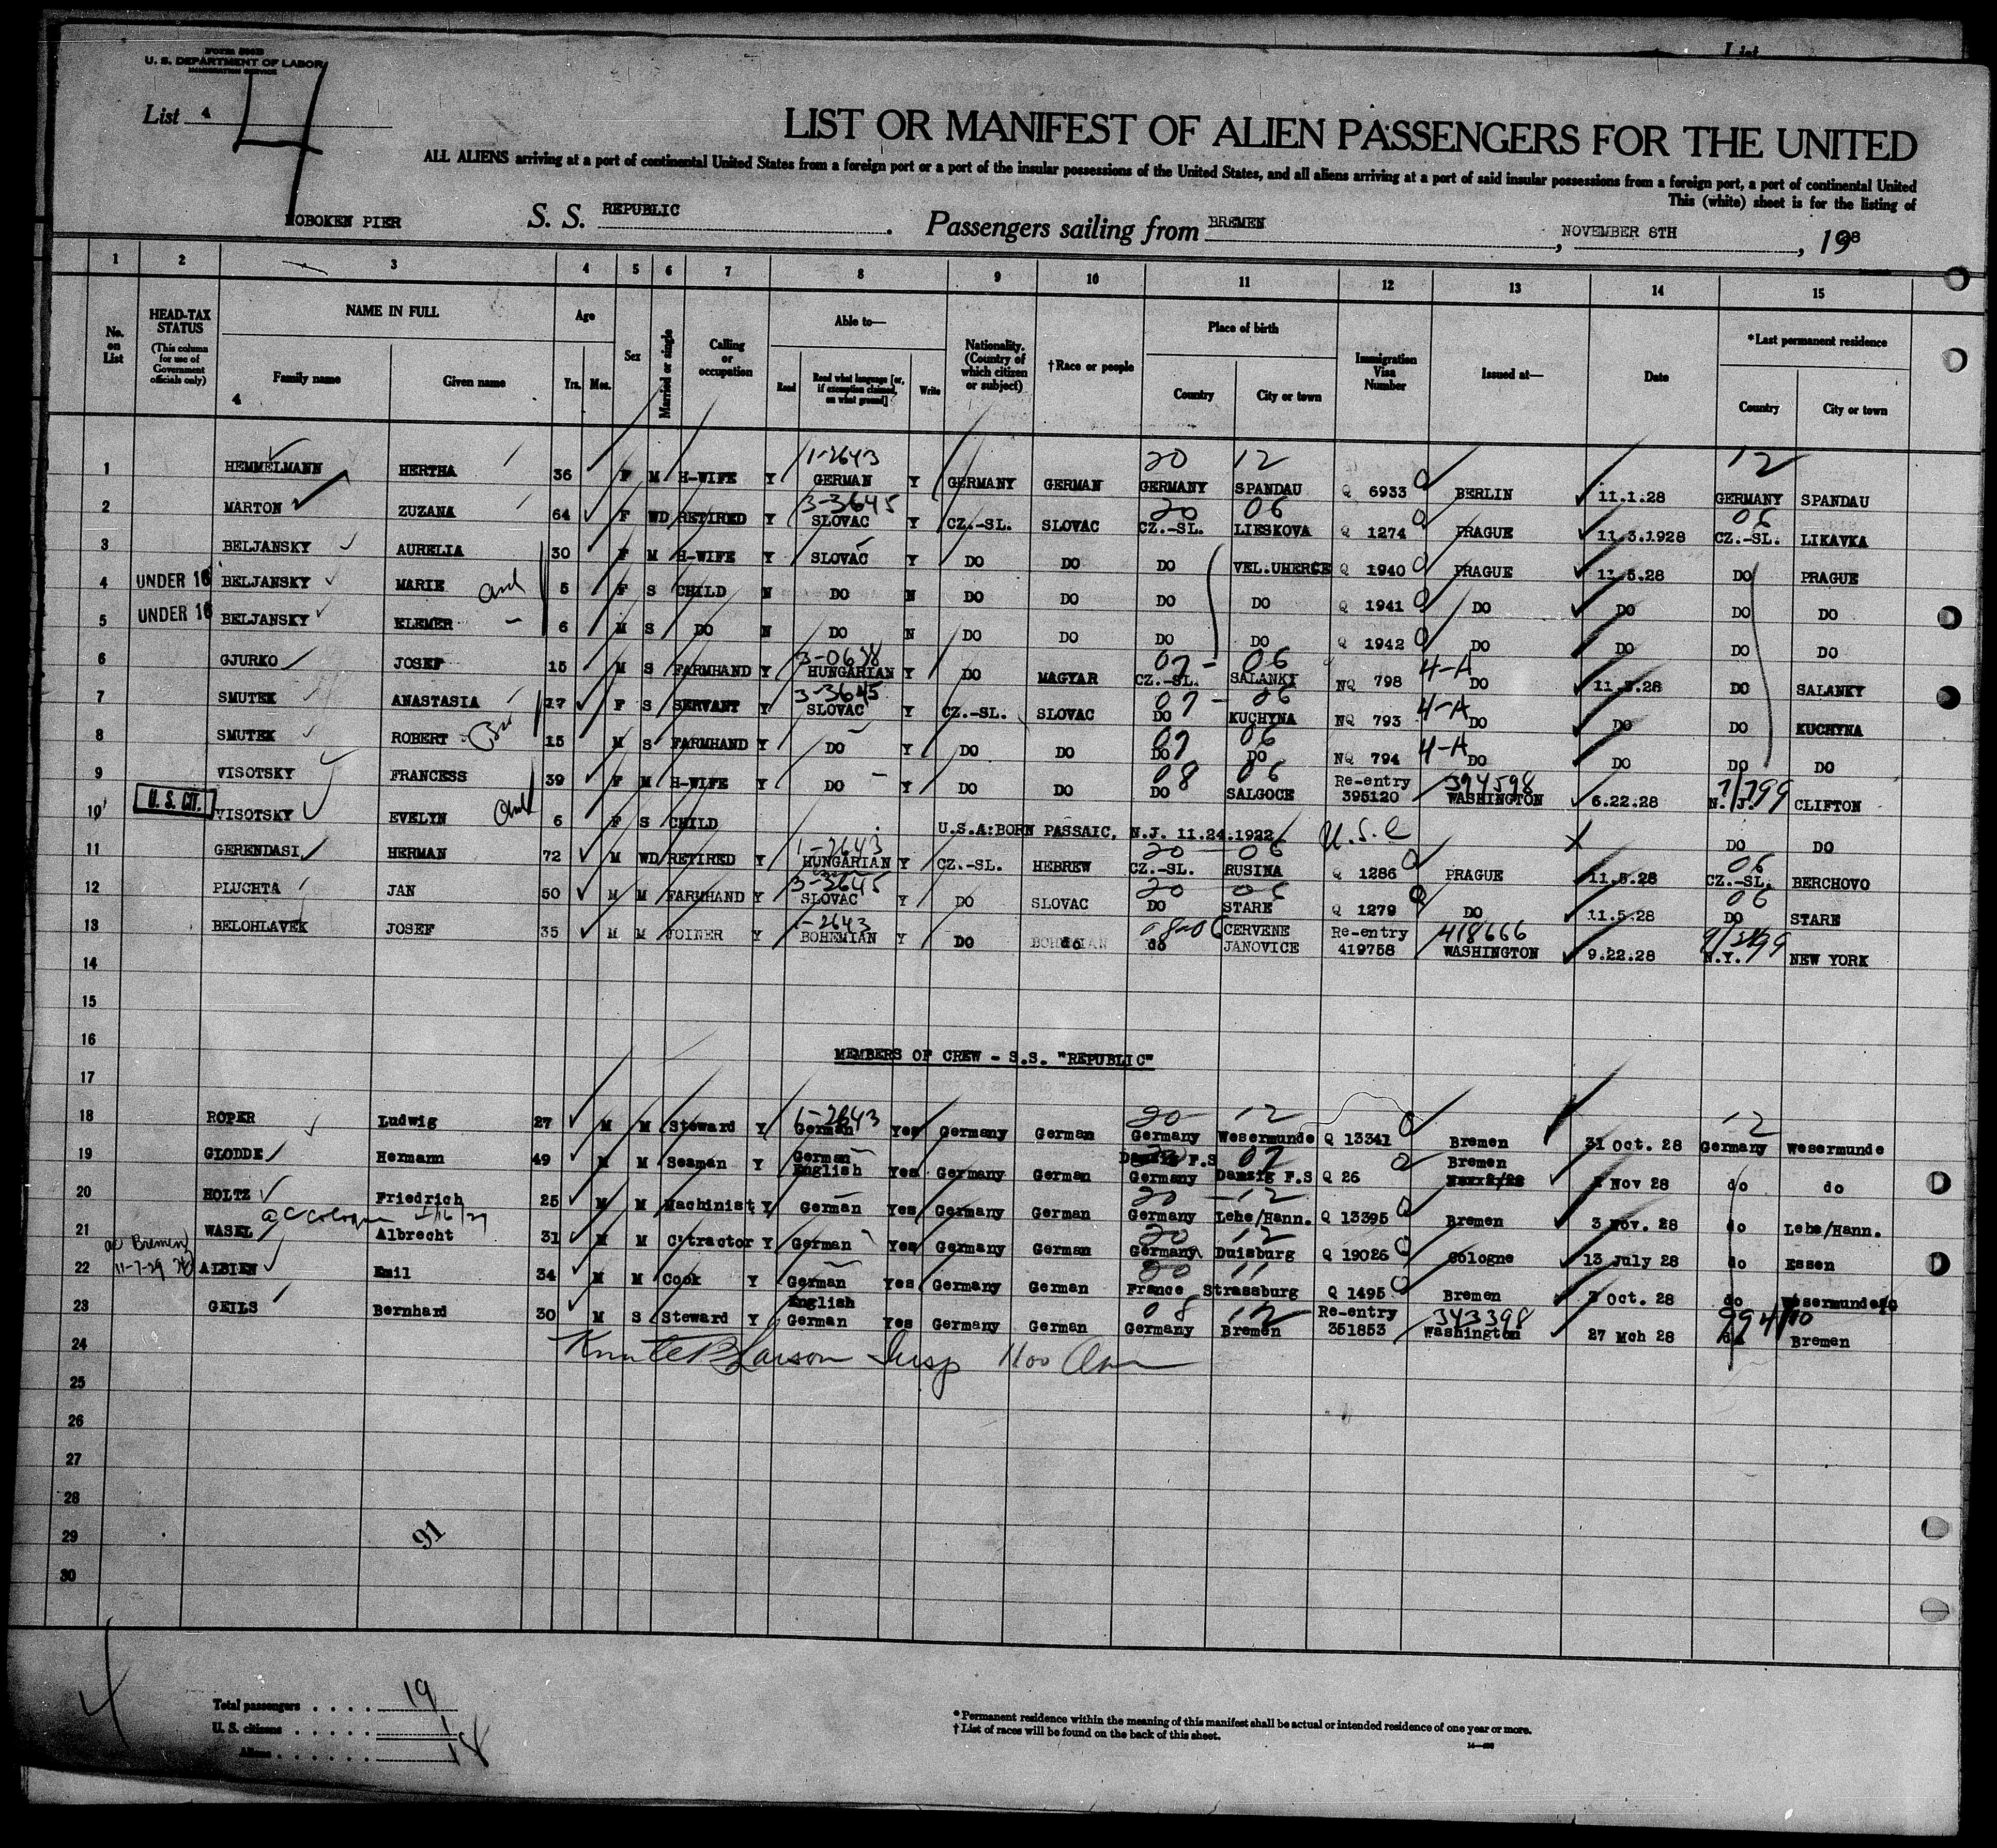 List
FORM 500B
U. S. DEPARTMENT OF LABOR
IMMIGRATION SERVICE
List 4
4
LIST OR MANIFEST OF ALIEN PASSENGERS FOR THE UNITED
ALL ALIENS arriving at a port of continental United States from a foreign port or a port of the insular possessions of the United States, and all aliens arriving at a port of said insular possessions from a foreign port, a port of continental United
This (white) sheet is for the listing of
HOBOKEN PIER S. S. REPUBLIC . Passengers sailing from BREMEN , NOVEMBER 8TH , 1928
1 2 3 4 5 6 7 8 9 10 11 12 13 14 15
No. on List
HEAD-TAX STATUS (This column for use of Government officials only)
NAME IN FULL Family name Given name
Age Yrs. Mos.
Sex
Married or single
Calling or occupation
Able to— Read Read what language [or, if exemption claimed, on what ground] Write
Nationality. (Country of which citizen or subject)
†Race or people
Place of birth Country City or town
Immigration Visa Number
Issued at—
Date
*Last permanent residence Country City or town
4
1-2643 20 12 12
1 HEMMELMANN HERTHA 36 F M H-WIFE Y GERMAN Y GERMANY GERMAN GERMANY SPANDAU Q 6933 BERLIN 11.1.28 GERMANY SPANDAU
3-3645 20 06 06
2 MARTON ZUZANA 64 F WD RETIRED Y SLOVAC Y CZ.-SL. SLOVAC CZ.-SL. LIESKOVA Q 1274 PRAGUE 11.3.1928 CZ.-SL. LIKAVKA
3 BELJANSKY AURELIA 30 F M H-WIFE Y SLOVAC Y DO DO DO VEL.UHERCE Q 1940 PRAGUE 11.5.28 DO PRAGUE
4 UNDER 16 BELJANSKY MARIE 5 F S CHILD N DO N DO DO DO DO Q 1941 DO DO DO DO
5 UNDER 16 BELJANSKY ELEMER 6 M S DO N DO N DO DO DO DO Q 1942 DO DO DO DO
3-0638 07 - 06 4-A
6 GJURKO JOSEF 15 M S FARMHAND Y HUNGARIAN Y DO MAGYAR CZ.-SL. SALANKY NQ 798 DO 11.5.28 DO SALANKY
3-3645 07 - 06 4-A
7 SMUTEK ANASTASIA 17 F S SERVANT Y SLOVAC Y CZ.-SL. SLOVAC DO KUCHYNA NQ 793 DO DO DO KUCHYNA
07 06 4-A
8 SMUTEK ROBERT 15 M S FARMHAND Y DO Y DO DO DO DO NQ 794 DO DO DO DO
08 06 394598
9 VISOTSKY FRANCESS 39 F M H-WIFE Y DO Y DO DO DO SALGOCE Re-entry 395120 WASHINGTON 6.22.28 N. J. CLIFTON
10 U. S. CIT. VISOTSKY EVELYN 6 F S CHILD U.S.A:BORN PASSAIC, N.J. 11.24.1922 U.S.C X DO DO
1-2643 20 06 06
11 GERENDASI HERMAN 72 M WD RETIRED Y HUNGARIAN Y CZ.-SL. HEBREW CZ.-SL. RUSINA Q 1286 PRAGUE 11.5.28 CZ.-SL. BERCHOVO
3-3645 20 06 06
12 PLUCHTA JAN 50 M M FARMHAND Y SLOVAC Y DO SLOVAC DO STARE Q 1279 DO 11.5.28 DO STARE
1-2643 08-06 418666
13 BELOHLAVEK JOSEF 35 M M JOINER Y BOHEMIAN Y DO do do CERVENE JANOVICE Re-entry 419758 WASHINGTON 9.22.28 N.Y. NEW YORK
14
15
16
MEMBERS OF CREW - S.S. "REPUBLIC"
17
1-2643 20 12 12
18 ROPER Ludwig 27 M M Steward Y German Yes Germany German Germany Wesermunde Q 13341 Bremen 31 Oct. 28 Germany Wesermunde
19 GLODDE Hermann 49 M M Seaman Y German English Yes Germany German Danzig F.S Germany Danzig F.S Q 26 Bremen Nov 28 do do
20 12
20 HOLTZ Friedrich 25 M M Machinist Y German Yes Germany German Germany Lehe/Hann. Q 13395 Bremen 3 Nov. 28 do Lehe/Hann.
20 12
21 WASEL Albrecht 31 M M C'tractor Y German Yes Germany German Germany Duisburg Q 19026 Cologne 13 July 28 do Essen
20 11
22 ALBIEN Emil 34 M M Cook Y German Yes Germany German France Strassburg Q 1495 Bremen Oct. 28 do Wesermunde
08 12 343398
23 GEILS Bernhard 30 M S Steward Y English German Yes Germany German Germany Bremen Re-entry 351853 Washington 27 Mch 28 Bremen
24 Knute B Larson Insp 1100 Am
25
26
27
28
29
91
30
Total passengers . . . . 19
U. S. citizens . . . . . 1
Aliens . . . . . . 18
* Permanent residence within the meaning of this manifest shall be actual or intended residence of one year or more.
† List of races will be found on the back of this sheet.